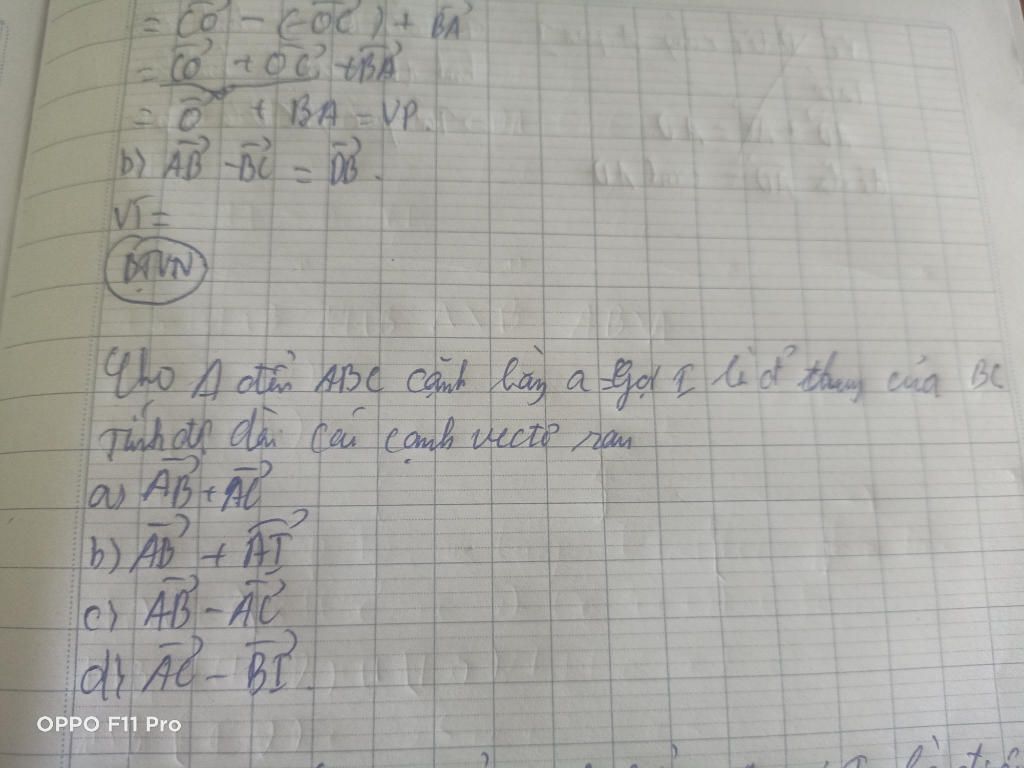 = CO - (-OC) + BA
= CO + OC + BA
= O + BA = VP.
b) AB - BC = DB.
VT =
BTVN
Cho Δ đều ABC cạnh bằng a Gọi I là đ' thung của BC
Tính độ dài các cạnh vectơ sau
a) AB + AC
b) AB + AI
c) AB - AC
d) AC - BI.
OPPO F11 Pro